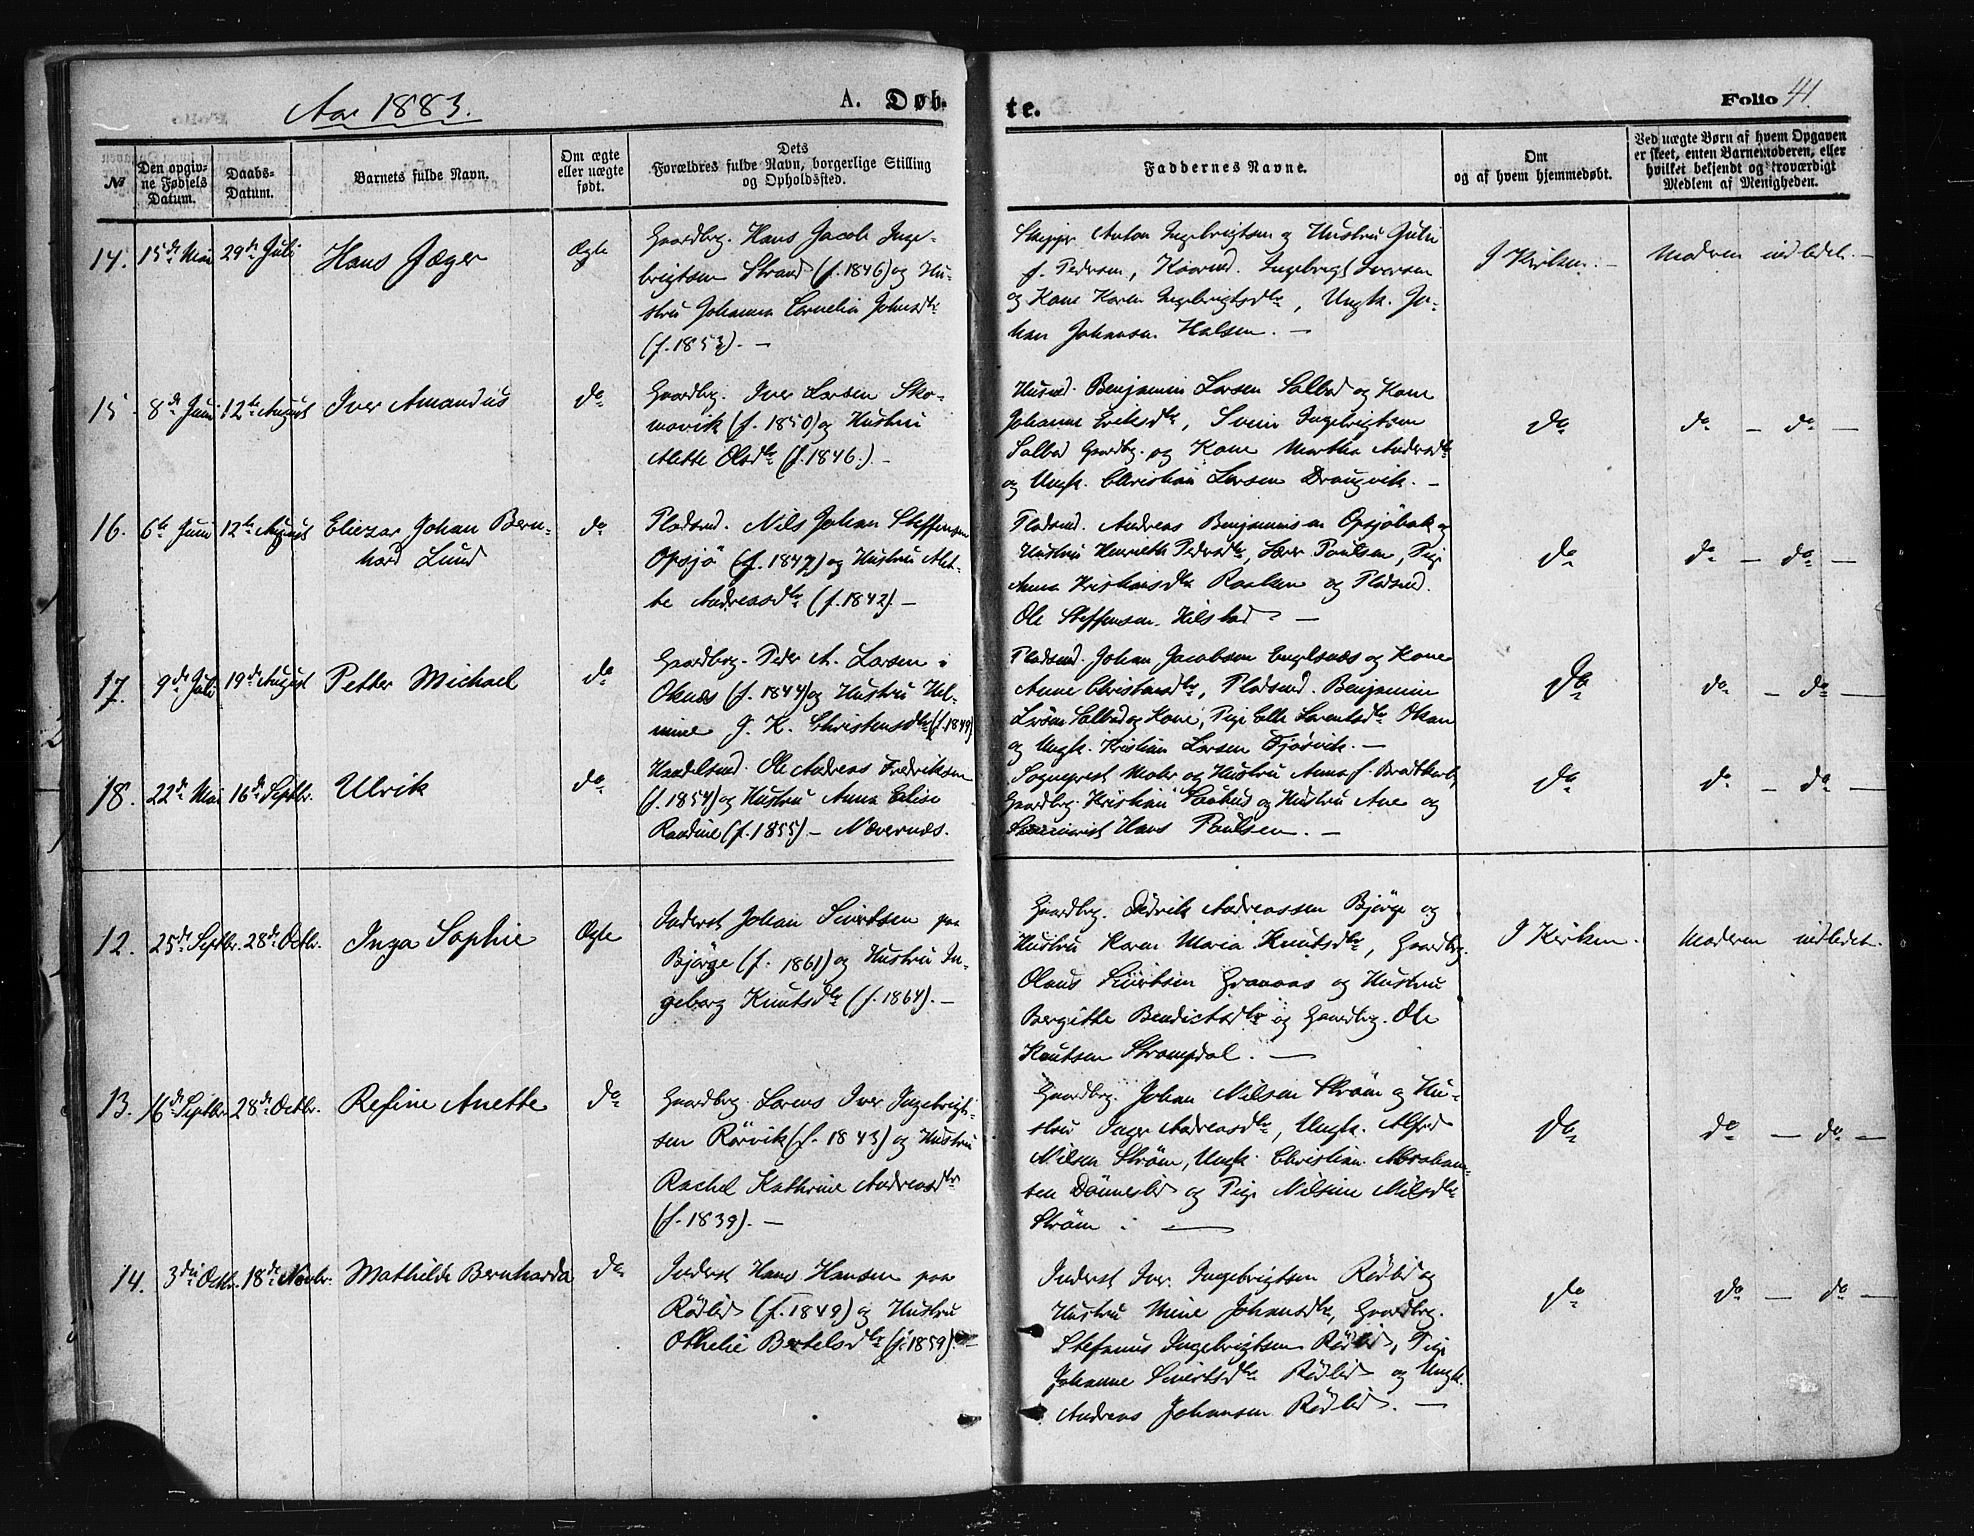 Aar 1883.
A. Døb-
te.
Folio 41.
No
Den opgiv-
ne Fødsels
Datum.
Daabs-
Datum.
Barnets fulde Navn.
Om ægte
eller uægte
født.
Dets
Forældres fulde Navn, borgerlige Stilling
og Opholdssted.
Faddernes Navne.
Om
og af hvem hjemmedøbt.
Ved uægte Børn af hvem Opgaven
er skeet, enten Barnemoderen, eller
hvilket bekjendt og troværdigt
Medlem af Menigheden.
14. 15de Mai 29de Juli Hans Jæger Ægte
Gaardbrg. Hans Jacob Inge-
brigtsen Strand (f. 1846) og Hu-
stru Johanna Cornelia Johnsdtr
(f. 1853). —
Skipper Anton Ingebrigtsen og Hustru Juli
f. Pedersen, Ingebrigt Iversen
og Kone Karen Ingebrigtsdtr, Ungk. Jo-
han Johansen Halsen. —
I Kirken. —
Moderen indledet. —
15. 8de Juni 12te August Iver Amandus do
Gaardbrg. Iver Larsen Sko-
movik (f. 1850) og Hustru
Alette Olsdtr (f. 1846.) —
Husmd. Benjamin Larsen Salbod og Kone
Johanne Eriksdtr, Svein Ingebrigtsen
Salbod Gaardbrg. og Kone Martha Andersdtr
og Ungk. Christian Larsen Drangvik. —
do
do — do —
16. 6te Juni 12te August Eliezar Johan Bern-
hard Lund
do
Pladsmd. Nils Johan Steffensen
Opsjø (f. 1847) og Hustru Alet-
te Andreasdtr (f. 1842). —
Pladsmd. Andreas Benjaminsen Opsjøbak og
Hustru Henriette Pedersdtr, Lærer Paulsen, Pige
Anna Kristiansdtr og Pladsmd.
Ole Steffensen Hilstad. —
do
do — do —
17. 9de Juli 19de August Petter Michael do
Gaardbrg. Peder A. Larsen i
Oknæs (f. 1844) og Hustru Hel-
mine J. K. Christensdtr (f. 1849)
Pladsmd. Johan Jacobsen Englsnæs og Kone
Anne Christensdtr, Pladsmd. Benjamin
Larsen Salbod og Kone, Pige Elle Lorentsdtr Okan
og Ungk. Kristian Larsen Fjøsvik. —
do
do — do —
18. 22de Mai 16de Septbr. Ulrik do
Handelsmd. Ole Andreas Fredriksen
(f. 1854) og Hustru Anna Elise
Raadine (f. 1855) — Nævernæs.
Sogneprest Mohr og Hustru Anna f. Bratkorb,
Gaardbrg. Kristian og Hustru Ane og
Seminarist Hans Paulsen. —
do
do — do —
12. 25de Septbr. 28de Octbr. Inga Sophie Ægte
Inderst Johan Sivertsen paa
Bjørge (f. 1861) og Hustru In-
geborg Knutsdtr (f. 1864). —
Gaardbrg. Didrik Andreassen Bjørge og
Hustru Karen Maria Knutsdtr, Gaardbrg.
Olaus Sivertsen Granaas og Hustru
Bergitte Bendictsdtr og Gaardbrg. Ole
Knutsen Strompdal. —
I Kirken.
Moderen indledet.
13. 16de Septbr. 28de Octbr. Refine Anette do
Gaardbrg. Lorens Iver Ingebrigt-
sen Rørvik (f. 1843) og Hustru
Rachel Kathrine Andreasdtr
(f. 1839). —
Gaardbrg. Johan Nilsen Strøm og Hu-
stru Inger Andreasdtr, Ungk. Alfred
Nilsen Strøm, Ungk. Christian Abraham-
sen Dønneslid og Pige Nilsine Nilsdtr
Strøm. —
do
do — do —
14. 3die Octbr. 18de Novbr. Mathilde Bernharda do
Inderst Hans Hansen paa
Rødlid (f. 1849) og Hustru
Othelie Bertelsdtr (f. 1859). —
Inderst Iver Ingebrigtsen Rødlid og
Hustru Mine Johansdtr, Gaardbrg.
Stefanus Ingebrigtsen Rødlid, Pige
Johanne Sivertsdtr Rødlid og Ungk.
Andreas Johansen Rødlid. —
do
do — do —